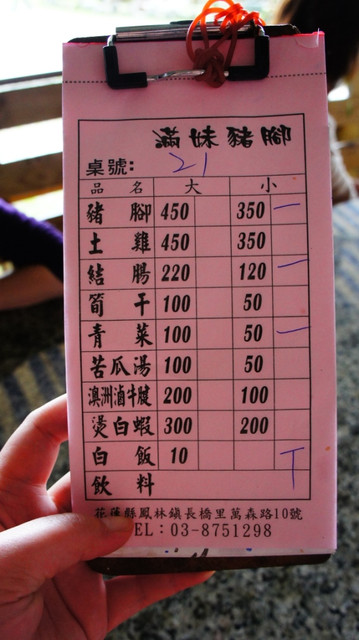 滿妹豬腳
桌號: 21
品名 大 小
豬腳 450 350 一
土雞 450 350
結腸 220 120 一
筍干 100 50
青菜 100 50 一
苦瓜湯 100 50
澳洲滷牛腱 200 100
燙白蝦 300 200
白飯 10 T
飲料
花蓮縣鳳林鎮長橋里萬森路10號
TEL：03-8751298